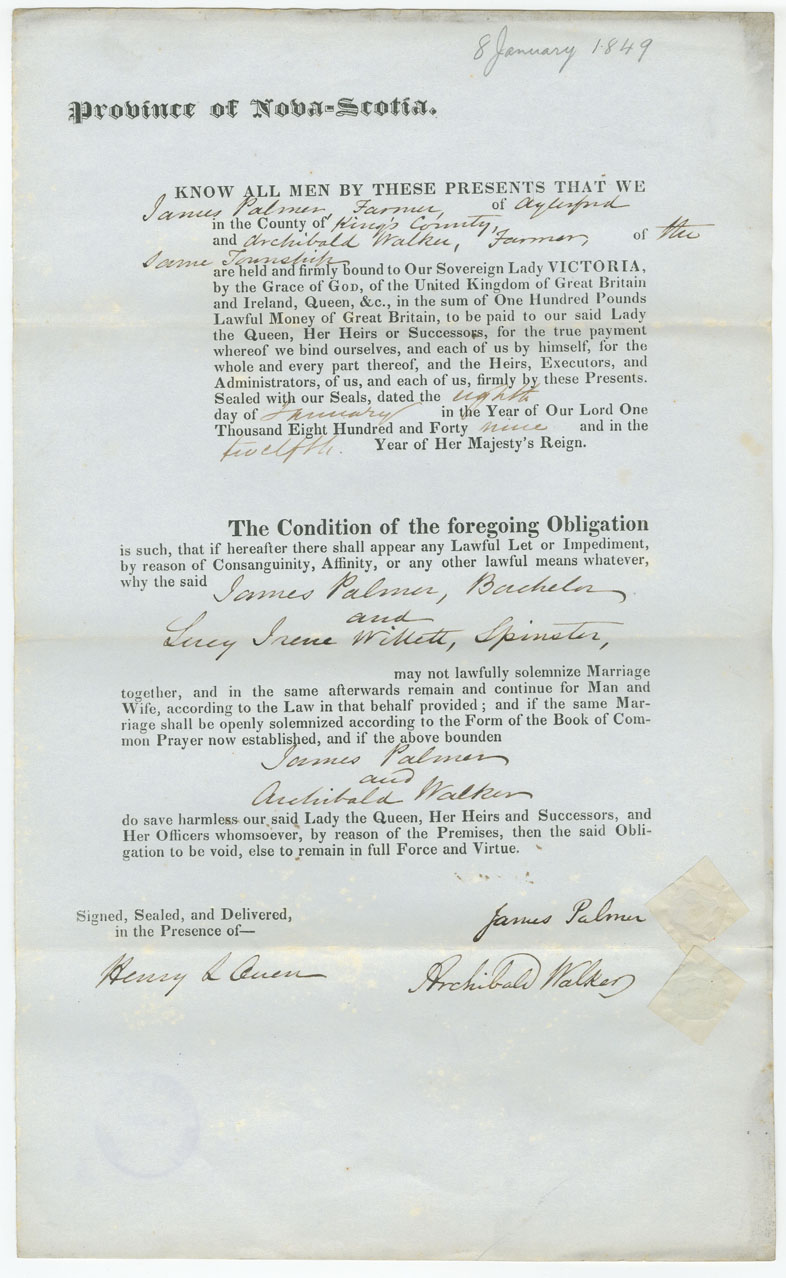 8 January 1849
Province of Nova-Scotia.
KNOW ALL MEN BY THESE PRESENTS THAT WE
James Palmer, Farmer, of Aylesford
in the County of King's County,
and Archibald Walker, Farmer, of the
Same Township
are held and firmly bound to Our Sovereign Lady VICTORIA,
by the Grace of GOD, of the United Kingdom of Great Britain
and Ireland, Queen, &c., in the sum of One Hundred Pounds
Lawful Money of Great Britain, to be paid to our said Lady
the Queen, Her Heirs or Successors, for the true payment
whereof we bind ourselves, and each of us by himself, for the
whole and every part thereof, and the Heirs, Executors, and
Administrators, of us, and each of us, firmly by these Presents.
Sealed with our Seals, dated the eighth
day of January in the Year of Our Lord One
Thousand Eight Hundred and Forty nine and in the
twelfth. Year of Her Majesty's Reign.
The Condition of the foregoing Obligation
is such, that if hereafter there shall appear any Lawful Let or Impediment,
by reason of Consanguinity, Affinity, or any other lawful means whatever,
why the said James Palmer, Bachelor
and
Lucy Irene Willett, Spinster,
may not lawfully solemnize Marriage
together, and in the same afterwards remain and continue for Man and
Wife, according to the Law in that behalf provided; and if the same Mar-
riage shall be openly solemnized according to the Form of the Book of Com-
mon Prayer now established, and if the above bounden
James Palmer
and
Archibald Walker
do save harmless our said Lady the Queen, Her Heirs and Successors, and
Her Officers whomsoever, by reason of the Premises, then the said Obli-
gation to be void, else to remain in full Force and Virtue.
Signed, Sealed, and Delivered,
in the Presence of—
James Palmer
Henry L Owen
Archibald Walker